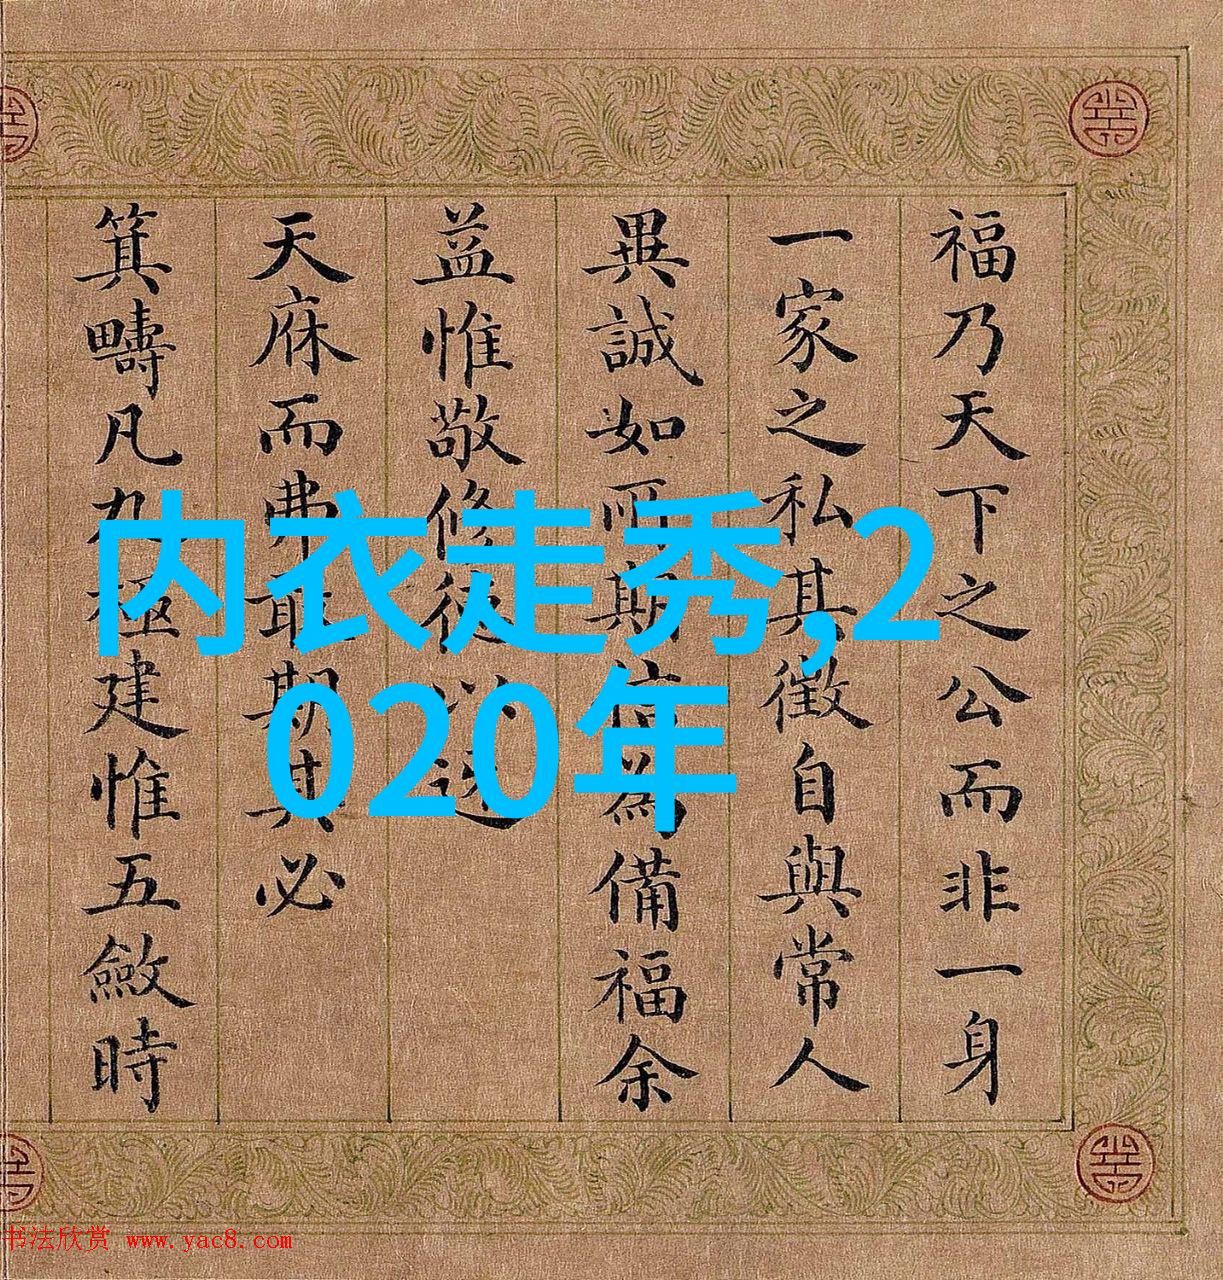 福乃天下之公而非一身
一家之私其徵自與常人
異誠如期信為備福余
益惟敬修以
天庥而弗敢期其必
箕疇凡九極建惟五斂時
内衣走秀,2
020年
书法欣赏 www.yac8.com